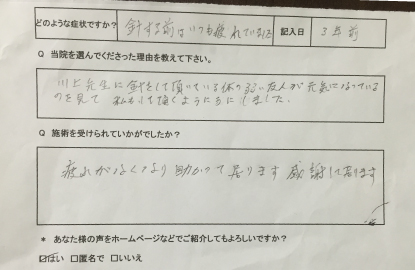 どのような症状ですか? 針する前はいつも疲れている 記入日 3年前
Q 当院を選んでくださった理由を教えて下さい。
川上先生に針をして頂いている体の弱い友人が元気になっている
のを見て 私もして頂くようにしました.
Q 施術を受けられていかがでしたか?
疲れがなくなり助かって居ります 感謝して居ります
* あなた様の声をホームページなどでご紹介してもよろしいですか?
☑はい □匿名で □いいえ